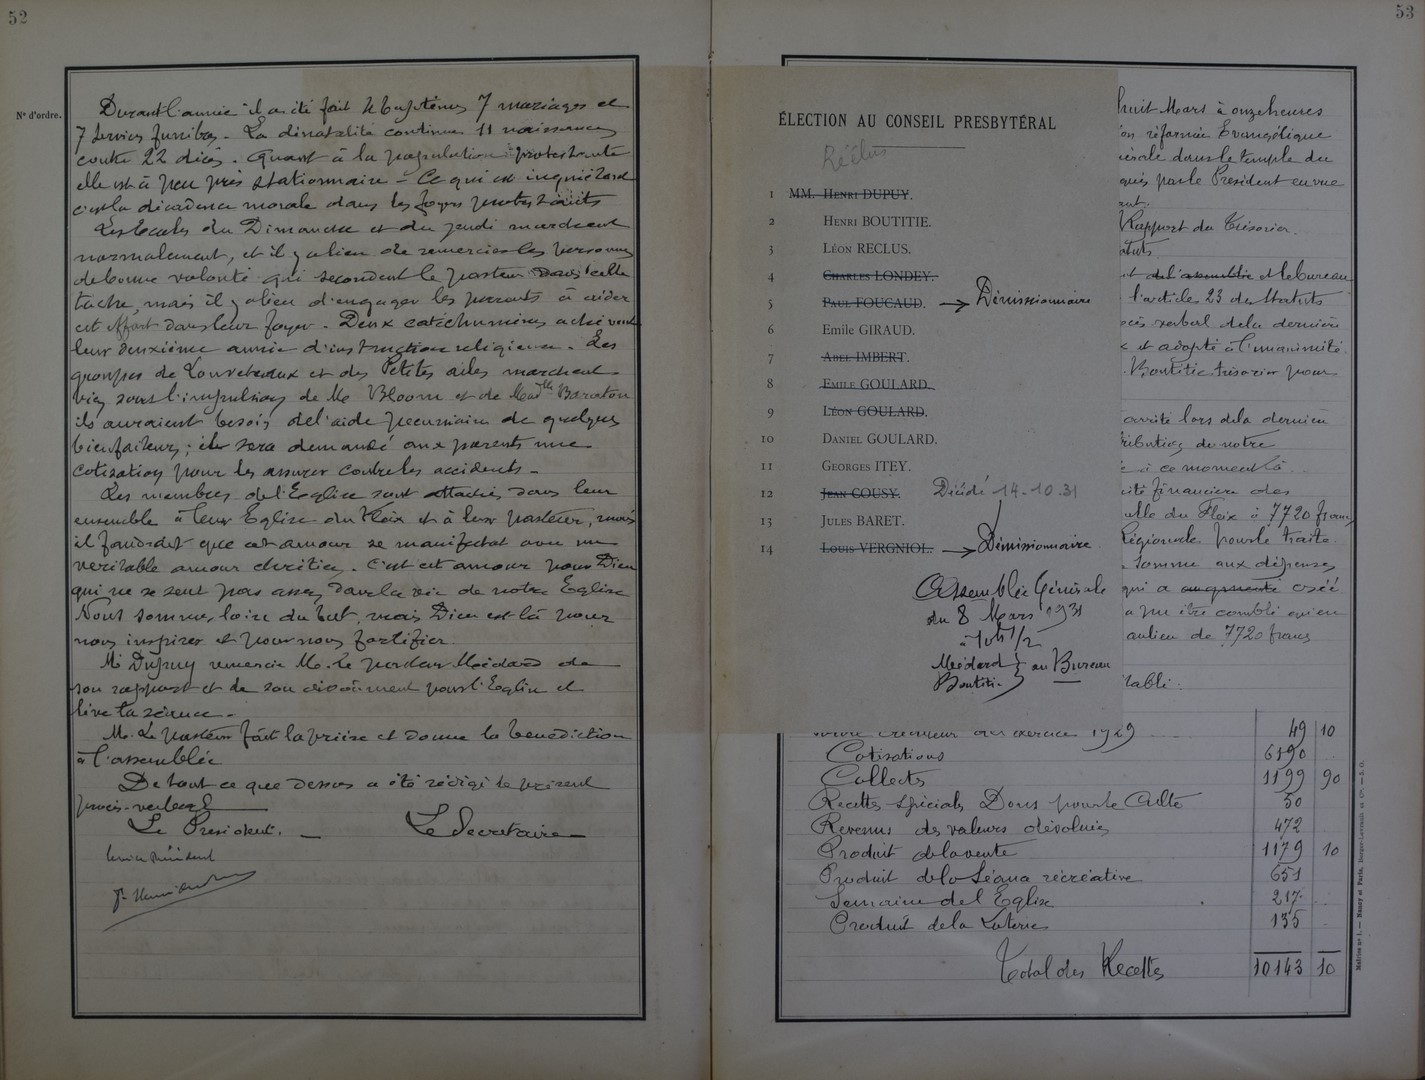 52
N° d'ordre.
Durant l'année il a été fait 4 baptêmes 7 mariages et
7 services funèbres - La dénatalité continue 11 naissances
contre 22 décès. Quant à la population protestante
elle est à peu près stationnaire - Ce qui est inquiétant
c'est la décadence morale dans les foyers protestants
Les Ecoles du Dimanche et du jeudi marchent
normalement, et il y a lieu de remercier les personnes
de bonne volonté qui secondent le pasteur dans cette
tache, mais il y a lieu d'engager les parents à aider
cet effort dans leur foyer - Deux catéchumènes achèvent
leur deuxième année d'instruction religieuse - Les
groupes de Louveteaux et des Petites ailes marchent
bien sous l'impulsion de Me Bloom et de Madlle Baraton
ils auraient besoin de l'aide pécuniaire de quelques
bienfaiteurs; il sera demandé aux parents une
cotisation pour les assurer contre les accidents -
Les membres de l'Eglise sont attachés dans leur
ensemble à leur Eglise du Fleix et à leur pasteur, mais
il faudrait que cet amour se manifestat avec un
veritable amour chrétien. C'est cet amour pour Dieu
qui ne se sent pas assez dans la vie de notre Eglise
Nous sommes loin du but, mais Dieu est là pour
nous inspirer et pour nous fortifier.
Mr Dupuy remercie M. le pasteur Médard de
son rapport et de son dévouement pour l'Eglise et
lève la séance -
M. Le pasteur fait la prière et donne la bénédiction
à l'assemblée
De tout ce que dessus a été rédigé le présent
procès-verbal
Le President. Le Secretaire
53
ÉLECTION AU CONSEIL PRESBYTÉRAL
Réélus
1 MM. HENRI DUPUY.
2 HENRI BOUTITIE.
3 LÉON RECLUS.
4 CHARLES LONDEY.
5 PAUL FOUCAUD. → Démissionnaire
6 EMILE GIRAUD.
7 ABEL IMBERT.
8 EMILE GOULARD.
9 LÉON GOULARD.
10 DANIEL GOULARD.
11 GEORGES ITEY.
12 JEAN COUSY. Décédé 14-10.31
13 JULES BARET.
14 LOUIS VERGNIOL. → Démissionnaire
Assemblée Générale
du 8 Mars 1931
à 10h 1/2
Médard
Boutitie } au Bureau
huit Mars à onze heures
réformée Evangélique
dans le temple du
par le President en vue
Rapport du Trésorier.
de l'assemblée et le bureau
l'article 23 des Statuts
verbal de la dernière
et adopté à l'unanimité.
Boutitie trésorier pour
lors de la dernière
de notre
à ce moment là
financière des
du Fleix à 7720 francs
Régionale pour le traite
somme aux dépenses
qui a augmenté
pu être comblé
au lieu de 7720 francs
1929 49 10
Cotisations 6190
Collectes 1199 90
Recettes spéciales Dons pour le Culte 50
Revenus des valeurs dévolues 472
Produit de la vente 1179 10
Produit de la Séance récréative 651
Semaine de l'Eglise 217
Produit de la Loterie 135
Total des Recettes 10143 10